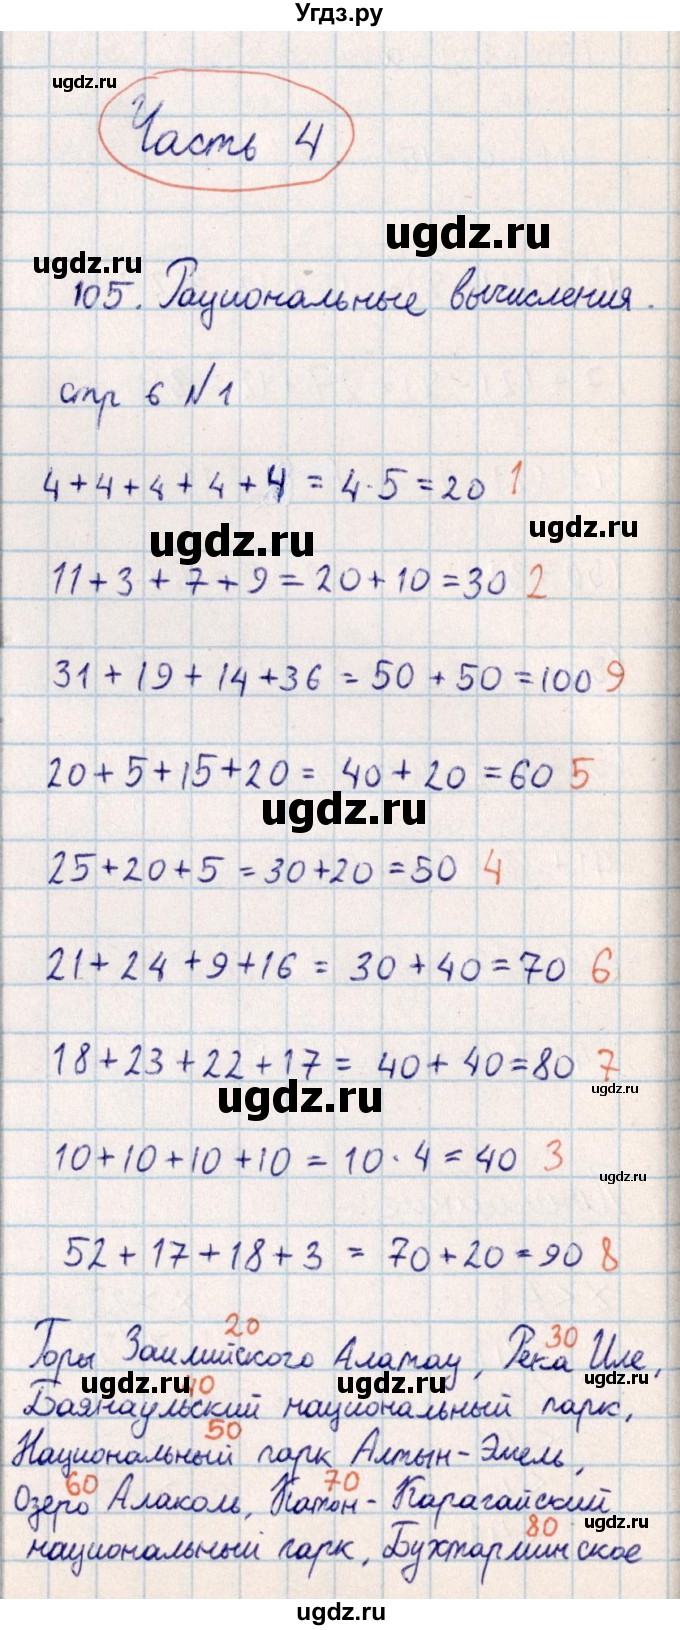 Угдз.ру
ugdz.ru
Часть 4
ugdz.ru
ugdz.ru
105. Рациональные вычисления.
стр 6 №1
4+4+4+4+4 = 4·5=20 1
ugdz.ru
ugdz.ru
11+3+7+9=20+10=30 2
31+19+14+36 = 50+50=100 9
20+5+15+20= 40+20=60 5
ugdz.ru
25+20+5=30+20=50 4
21+24+9+16 = 30+40=70 6
18+23+22+17= 40+40=80 7
ugdz.ru
ugdz.ru
10+10+10+10=10·4=40 3
ugdz.ru
52+17+18+3 = 70+20=90 8
20 30
Горы Заилийского Алатау, Река Или,
ugdz.ru ugdz.ru ugdz.ru
40
Баянаульский национальный парк,
50
Национальный парк Алтын-Эмель,
60 70
Озеро Алаколь, Катон-Карагайский
ugdz.ru
80
национальный парк, Бухтарминское
ugdz.ru